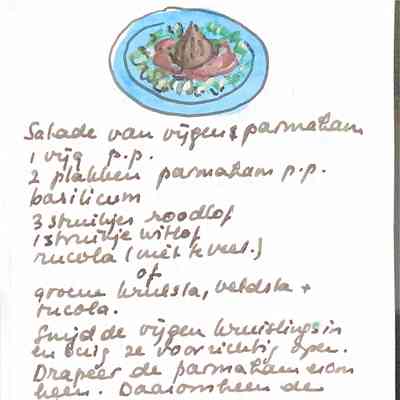 Salade van vijgen & parmaham
1 vijg p.p.
2 plakken parmaham p.p.
basilicum
3 struikjes roodlof
1 struikje witlof
rucola (niet te veel.)
of
groene krulsla, veldsla +
rucola.
Snijd de vijgen kruislings in
en buig ze voorzichtig open.
Drapeer de parmaham erom
heen. Daaromheen de